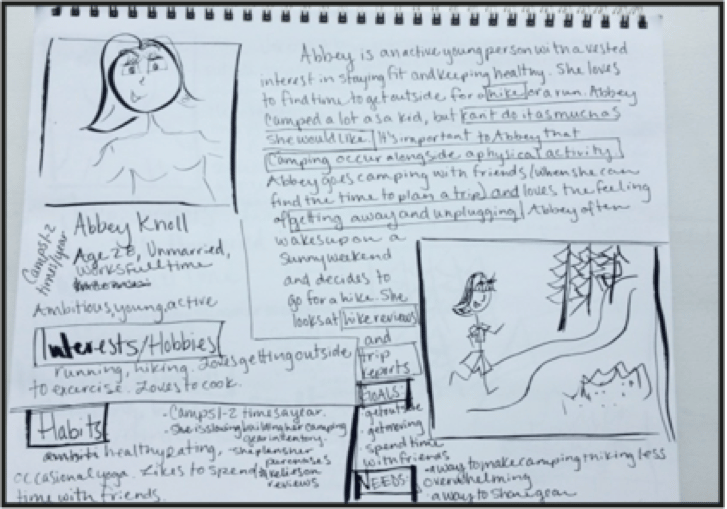 Abbey is an active young person with a vested
interest in staying fit and keeping healthy. She loves
to find time to get outside for a hike or a run. Abbey
camped a lot as a kid, but can't do it as much as
she would like. It's important to Abbey that
camping occur alongside a physical activity.
Abbey goes camping with friends (when she can
find the time to plan a trip) and loves the feeling
of getting away and unplugging. Abbey often
wakes up on a
sunny weekend
and decides to
go for a hike. She
looks at hike reviews
and
trip
reports
Camps 1-2
times/year
Abbey Knoll
Age 28, Unmarried,
works full time
Ambitious, young, active
Interests/Hobbies
running, hiking. Loves getting outside
to excercise. Loves to cook.
Habits
healthy eating,
occasional yoga. Likes to spend
time with friends.
- Camps 1-2 times a year.
- She is slowly building her camping
gear inventory.
- she plans her
purchases
& relies on
reviews
GOALS:
- get outside
- get moving
- spend time
with friends
NEEDS:
- a way to make camping/hiking less
overwhelming
- a way to share gear